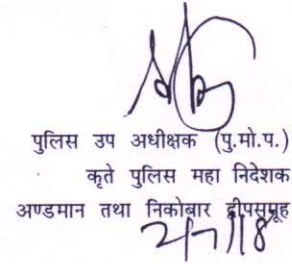 पुलिस उप अधीक्षक (पु.मो.प.)
कृते पुलिस महा निदेशक
अण्डमान तथा निकोबार द्वीपसमूह
2/7/18